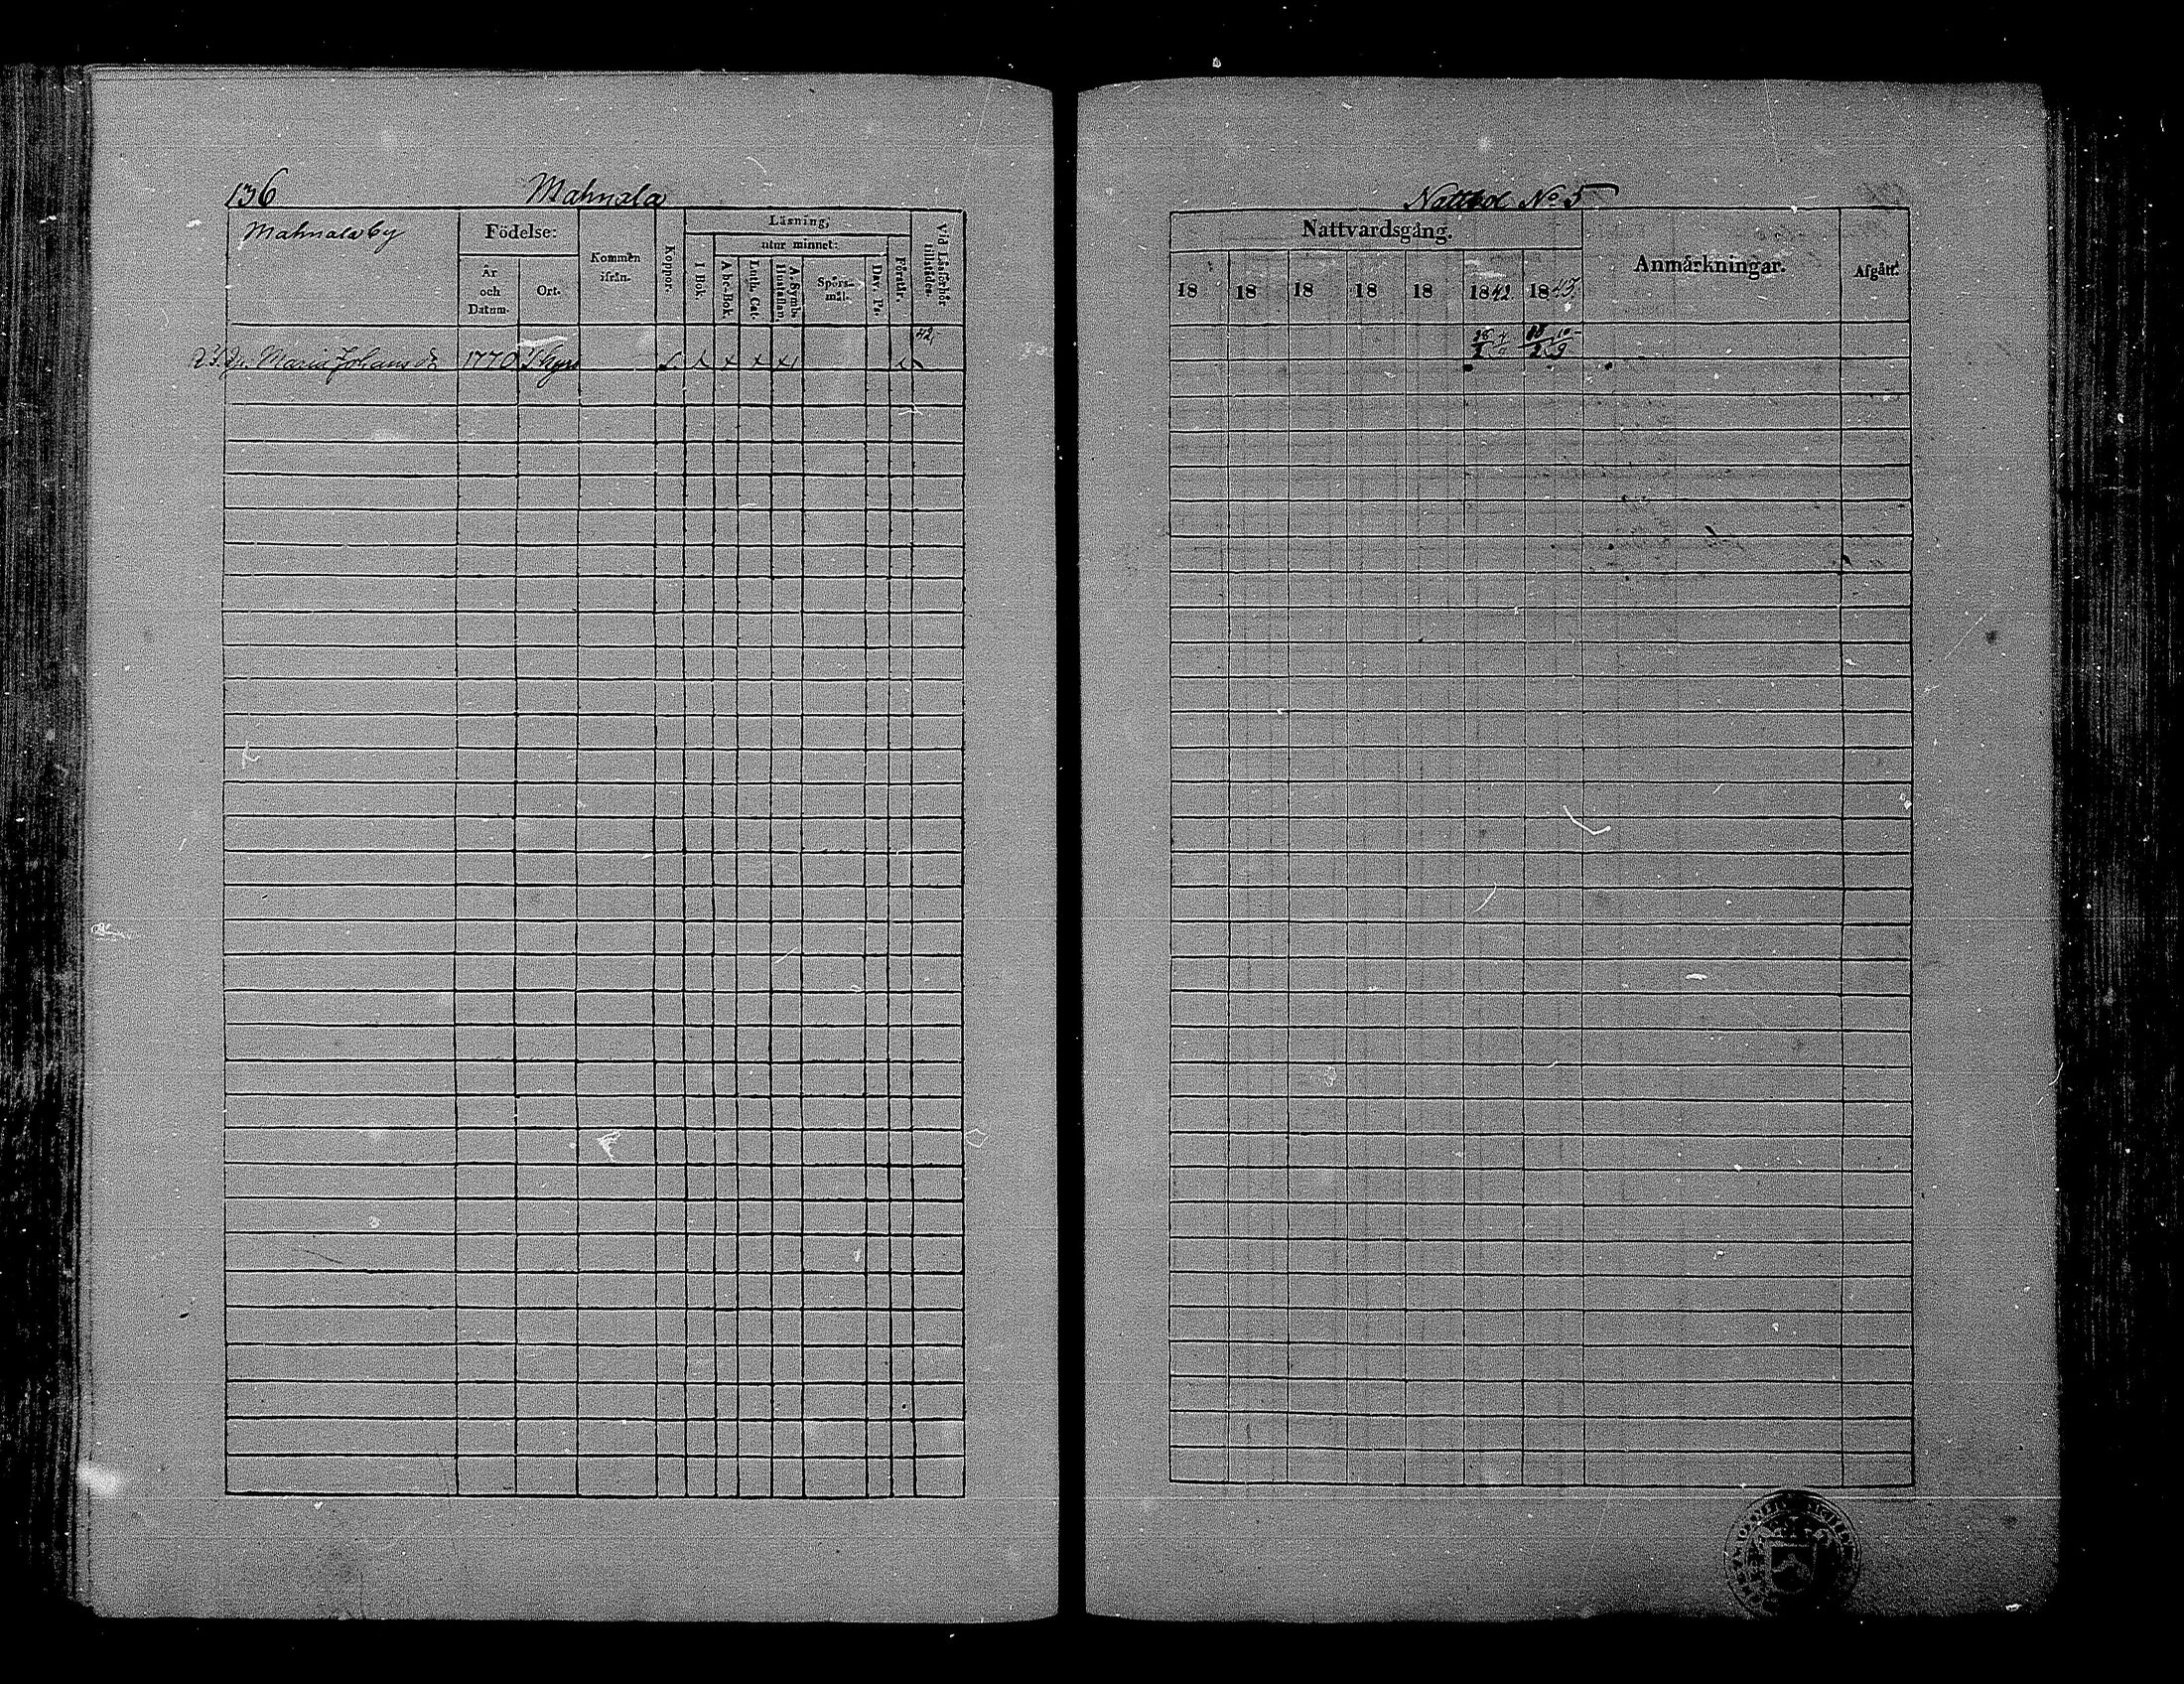 136 Mahnala
Mahnala by
Födelse:
År
och
Datum.
Ort.
Kommen
ifrån.
Koppor.
Läsning,
I Bok.
utur minnet:
Abc-Bok.
Luth. Cat.
A. Symb.
Hustaflan.
Spörs-
mål.
Dav. Ps.
Förstår.
Vid Läsförhör
tillstädes.
Maria Johans dr 1770 42
No 5
Nattvardsgång.
18 18 18 18 18 1842. 1843
Anmärkningar.
Afgått.